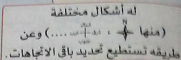 له أشكال مختلفة
(منها ، ، .....) وعن
طريقه تستطيع تحديد باقى الاتجاهات.